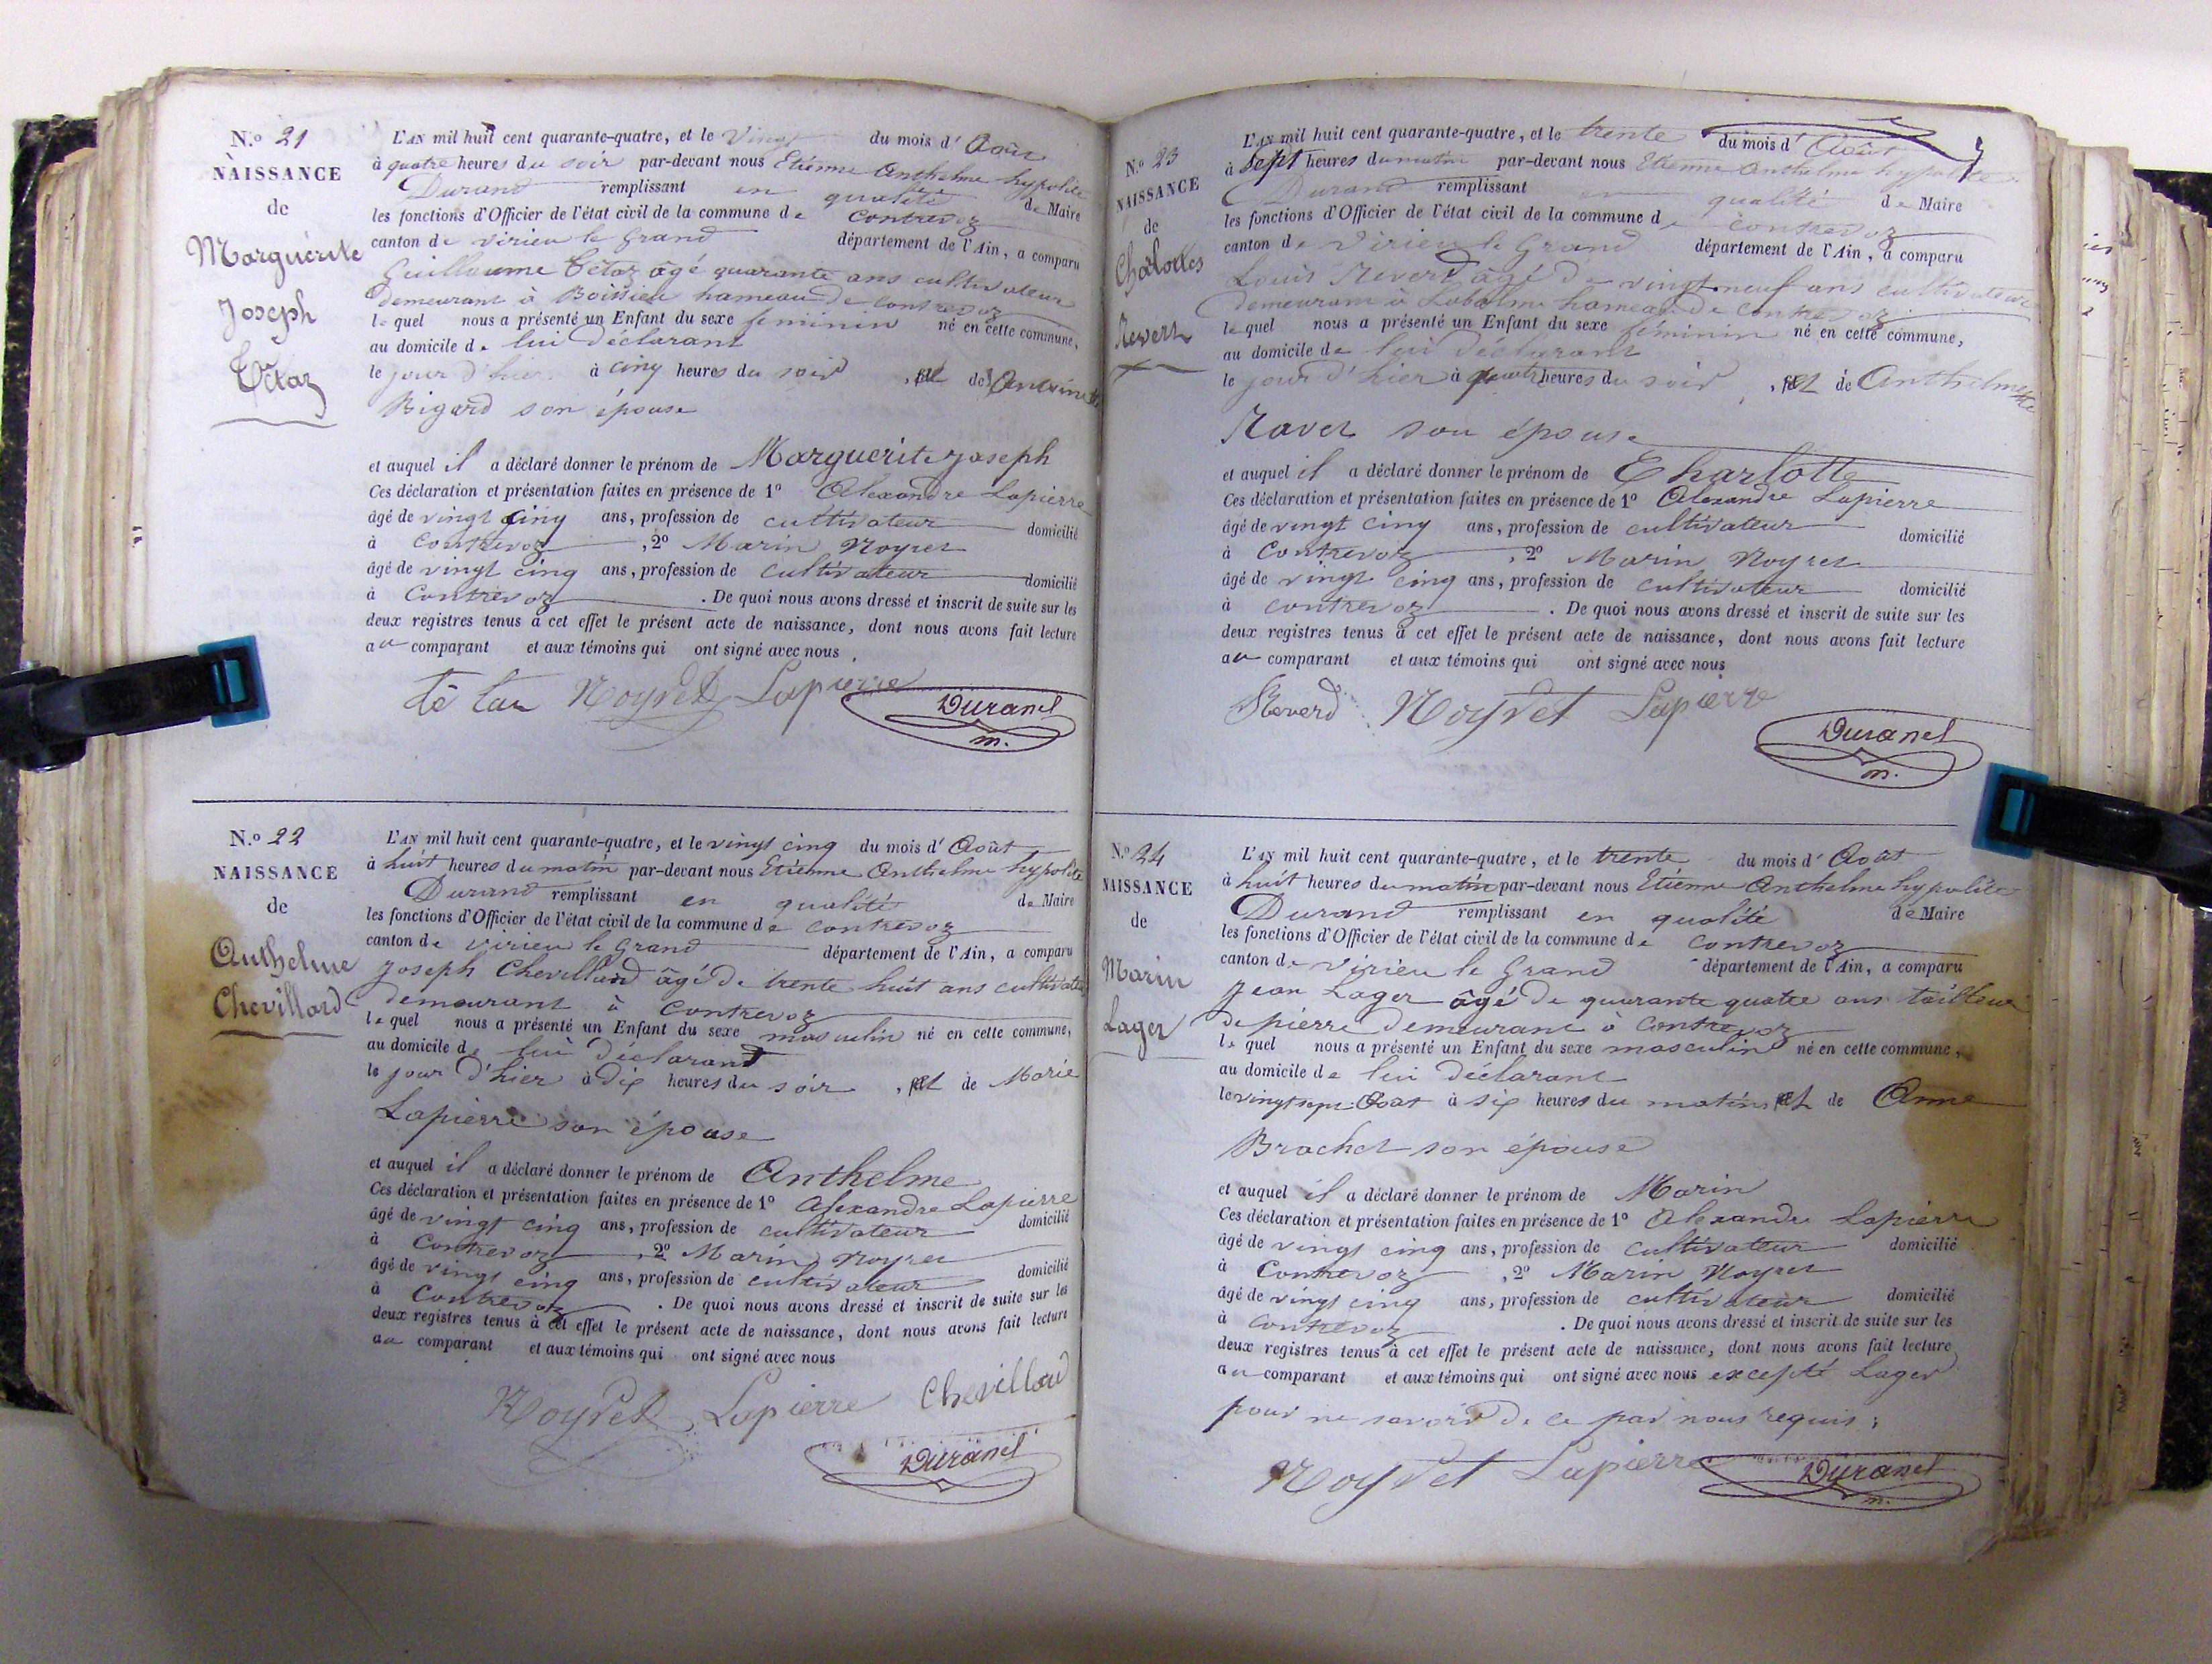 N.º 21
NAISSANCE
de
Marguérite
Joseph
Tétaz
L'AN mil huit cent quarante-quatre, et le Vingt du mois d'Août
à quatre heures du soir par-devant nous Etienne Anthelme hypolite
Durand remplissant en qualité de Maire
les fonctions d'Officier de l'état civil de la commune de Contrevoz
canton de virieu le Grand département de l'Ain, a comparu
Guillaume Tétaz âgé quarante ans cultivateur
demeurant à Boissieu hameau de Contrevoz
lequel nous a présenté un Enfant du sexe féminin né en cette commune,
au domicile de lui déclarant
le jour d'hier à cinq heures du soir, et de Antoinette
Bigard son épouse
et auquel il a déclaré donner le prénom de Marguerite joseph
Ces déclaration et présentation faites en présence de 1º Alexandre Lapierre
âgé de vingt cinq ans, profession de cultivateur domicilié
à Contrevoz, 2º Marin Noyret
âgé de vingt cinq ans, profession de cultivateur domicilié
à Contrevoz. De quoi nous avons dressé et inscrit de suite sur les
deux registres tenus à cet effet le présent acte de naissance, dont nous avons fait lecture
au comparant et aux témoins qui ont signé avec nous
té taz Noyret Lapierre Durand
m.
N.º 22
NAISSANCE
de
Anthelme
Chevillard
L'AN mil huit cent quarante-quatre, et le vingt cinq du mois d'Août
à huit heures du matin par-devant nous Etienne Anthelme hypolite
Durand remplissant en qualité de Maire
les fonctions d'Officier de l'état civil de la commune de contrevoz
canton de virieu le Grand département de l'Ain, a comparu
joseph Chevillard âgé de trente huit ans cultivateur
demeurant à Contrevoz
lequel nous a présenté un Enfant du sexe masculin né en cette commune,
au domicile de lui déclarant
le jour d'hier à dix heures du soir, et de Marie
Lapierre son épouse
et auquel il a déclaré donner le prénom de Anthelme
Ces déclaration et présentation faites en présence de 1º Alexandre Lapierre
âgé de vingt cinq ans, profession de cultivateur domicilié
à Contrevoz, 2º Marin Noyret
âgé de vingt cinq ans, profession de cultivateur domicilié
à Contrevoz. De quoi nous avons dressé et inscrit de suite sur les
deux registres tenus à cet effet le présent acte de naissance, dont nous avons fait lecture
au comparant et aux témoins qui ont signé avec nous
Noyret Lapierre Chevillard
Durand
N.º 23
NAISSANCE
de
Charlottes
Revert
L'AN mil huit cent quarante-quatre, et le trente du mois d'Août
à sept heures du matin par-devant nous Etienne Anthelme hypolite
Durand remplissant en qualité de Maire
les fonctions d'Officier de l'état civil de la commune de contrevoz
canton de Virieu le Grand département de l'Ain, a comparu
Louis Reverd âgé de vingt neuf ans cultivateur
demeurant à Labalme hameau de Contrevoz
lequel nous a présenté un Enfant du sexe féminin né en cette commune,
au domicile de lui déclarant
le jour d'hier à quatre heures du soir, et de Anthelmette
Ravet son épouse
et auquel il a déclaré donner le prénom de Charlotte
Ces déclaration et présentation faites en présence de 1º Alexandre Lapierre
âgé de vingt cinq ans, profession de cultivateur domicilié
à Contrevoz, 2º Marin Noyret
âgé de vingt cinq ans, profession de cultivateur domicilié
à contrevoz. De quoi nous avons dressé et inscrit de suite sur les
deux registres tenus à cet effet le présent acte de naissance, dont nous avons fait lecture
au comparant et aux témoins qui ont signé avec nous
Reverd Noyret Lapierre
Durand
m.
N.º 24
NAISSANCE
de
Marin
Lager
L'AN mil huit cent quarante-quatre, et le trente du mois d'Août
à huit heures du matin par-devant nous Etienne Anthelme hypolite
Durand remplissant en qualité de Maire
les fonctions d'Officier de l'état civil de la commune de contrevoz
canton de virieu le Grand département de l'Ain, a comparu
Jean Lager âgé de quarante quatre ans tailleur
de pierre demeurant à Contrevoz
lequel nous a présenté un Enfant du sexe masculin né en cette commune,
au domicile de lui déclarant
le vingt sept Août à six heures du matin, et de Anne
Brachet son épouse
et auquel il a déclaré donner le prénom de Marin
Ces déclaration et présentation faites en présence de 1º Alexandre Lapierre
âgé de vingt cinq ans, profession de cultivateur domicilié
à Contrevoz, 2º Marin Noyret
âgé de vingt cinq ans, profession de cultivateur domicilié
à Contrevoz. De quoi nous avons dressé et inscrit de suite sur les
deux registres tenus à cet effet le présent acte de naissance, dont nous avons fait lecture
au comparant et aux témoins qui ont signé avec nous excepté Lager
pour ne savoir de ce par nous requis;
Noyret Lapierre Durand
m.